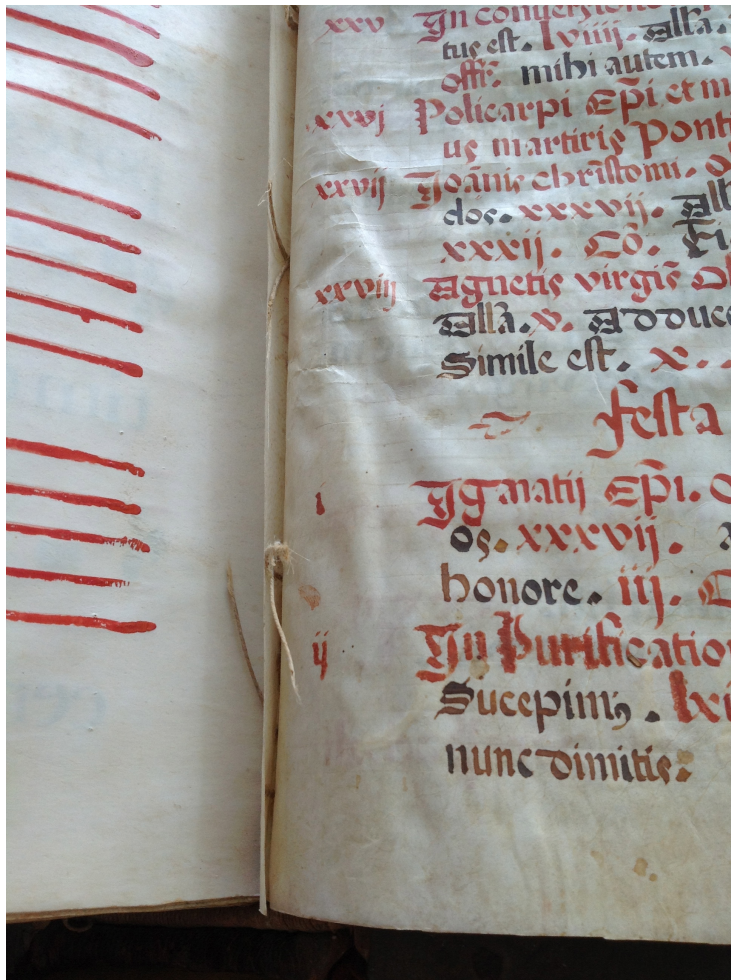 xxv In conversione
tus est. lviiij. Alla.
offi. mihi autem.
xxvj Policarpi Epi et m
us martiris Pont
xxvij Joanis christomi. O
dos. xxxvij. All
xxxij. Co.
xxviij Agnetis virgis
Alla. v. Adduce
Simile est. x.
festa
i Ignatij Epi. O
os. xxxvij.
honore. iij. C
ij In Purificatio
Sucepimꝰ. lxi
nunc dimitis: